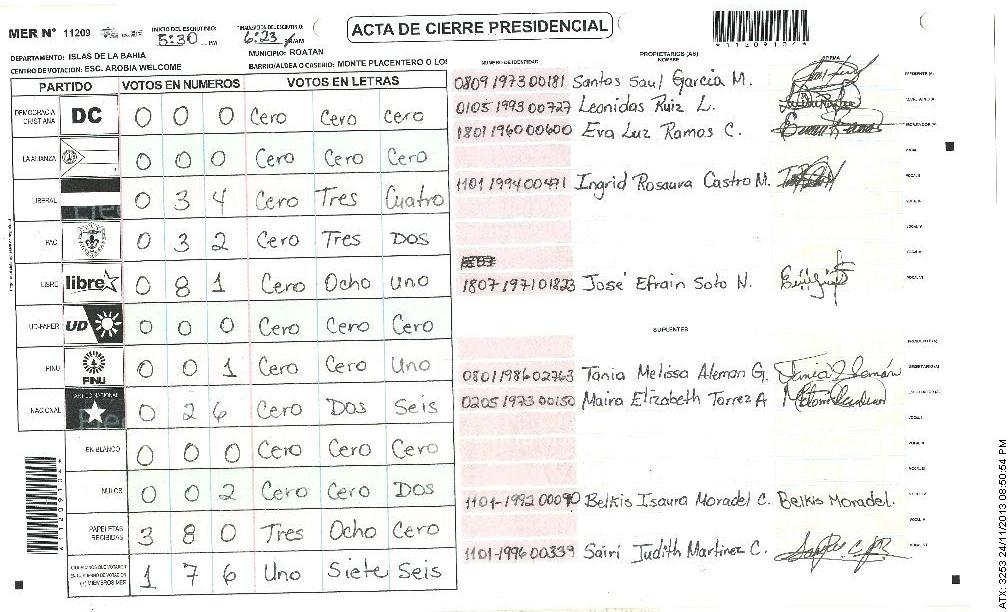 MER N° 11209
INICIO DEL ESCRUTINIO: 5:30 PM
FINALIZACION DEL ESCRUTINIO: 6:23
ACTA DE CIERRE PRESIDENCIAL
DEPARTAMENTO: ISLAS DE LA BAHIA
MUNICIPIO: ROATAN
CENTRO DE VOTACION: ESC. AROBIA WELCOME
BARRIO/ALDEA O CASERIO: MONTE PLACENTERO O LO
PARTIDO VOTOS EN NUMEROS VOTOS EN LETRAS
DEMOCRACIA CRISTIANA DC 0 0 0 Cero Cero Cero
LA ALIANZA 0 0 0 Cero Cero Cero
LIBERAL 0 3 4 Cero Tres Cuatro
PAC 0 3 2 Cero Tres Dos
LIBRE libre 0 8 1 Cero Ocho uno
UD-FAPER UD 0 0 0 Cero Cero Cero
PINU PINU 0 0 1 Cero Cero Uno
NACIONAL 0 2 6 Cero Dos Seis
EN BLANCO 0 0 0 Cero Cero Cero
NULOS 0 0 2 Cero Cero Dos
PAPELETAS RECIBIDAS 3 8 0 Tres Ocho Cero
1 7 6 Uno Siete Seis
NUMERO DE IDENTIDAD
PROPIETARIOS (AS)
NOMBRE
FIRMA
0809 1973 00181 Santos Saul Garcia M.
0105 1993 00727 Leonidas Ruiz L.
1801 1960 00600 Eva Luz Ramos C.
1101 1994 00471 Ingrid Rosaura Castro M.
1807 1971 01823 José Efrain Soto N.
SUPLENTES
0801 1986 02763 Tania Melissa Aleman G.
0205 1973 00150 Maira Elizabeth Torrez A
1101-1992 00090 Belkis Isaura Moradel C. Belkis Moradel.
1101-1996 00339 Sairi Judith Martinez C.
ATX: 3253 24/11/2013 08:50:54 PM